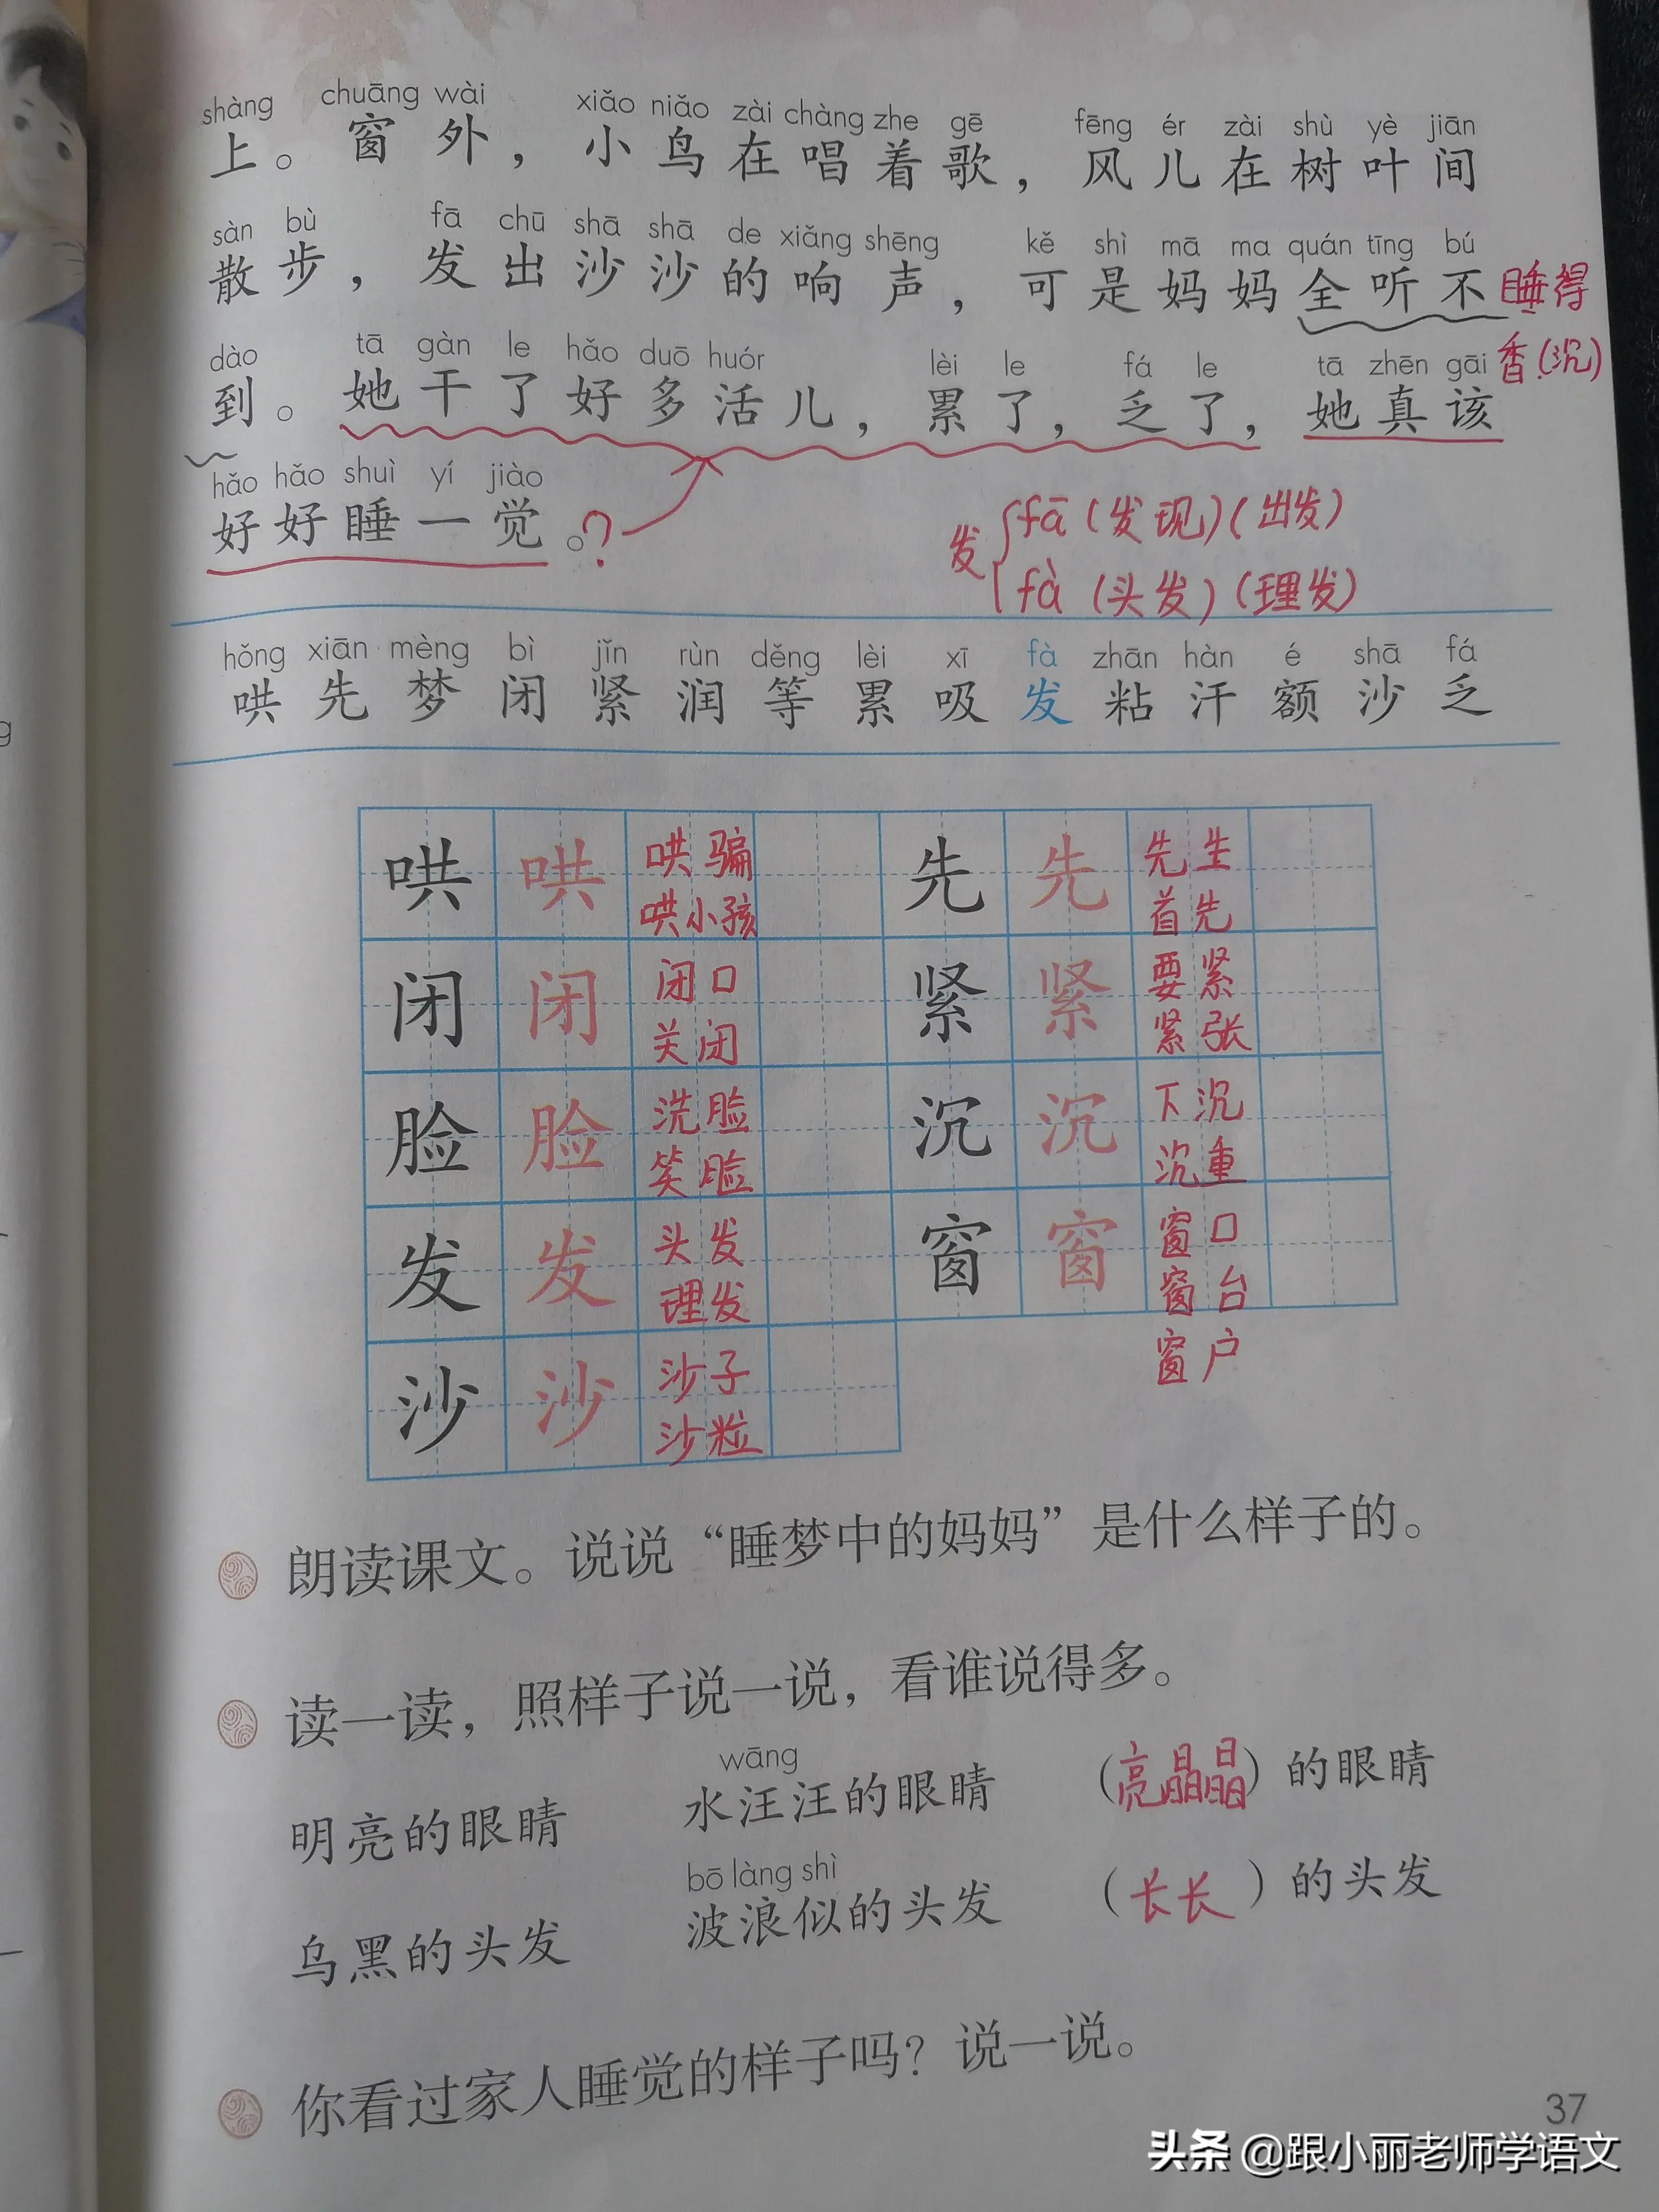 shàng chuāng wài xiǎo niǎo zài chàng zhe gē fēng ér zài shù yè jiān
上。窗外，小鸟在唱着歌，风儿在树叶间
sàn bù fā chū shā shā de xiǎng shēng kě shì mā ma quán tīng bú
散步，发出沙沙的响声，可是妈妈全听不 睡得
dào tā gàn le hǎo duō huór lèi le fá le tā zhēn gāi 香(沉)
到。她干了好多活儿，累了，乏了，她真该
hǎo hǎo shuì yí jiào
好好睡一觉。?
发 fā (发现)(出发)
fà (头发)(理发)
hǒng xiān mèng bì jǐn rùn děng lèi xī fà zhān hàn é shā fá
哄先梦闭紧润等累吸发粘汗额沙乏
哄 哄 哄骗 先 先 先生
哄小孩 首先
闭 闭 闭口 紧 紧 要紧
关闭 紧张
脸 脸 洗脸 沉 沉 下沉
笑脸 沉重
发 发 头发 窗 窗 窗口
理发 窗台
窗户
沙 沙 沙子
沙粒
朗读课文。说说“睡梦中的妈妈”是什么样子的。
读一读，照样子说一说，看谁说得多。
wāng
明亮的眼睛 水汪汪的眼睛 (亮晶晶)的眼睛
bō làng shì
乌黑的头发 波浪似的头发 (长长)的头发
你看过家人睡觉的样子吗？说一说。
37
头条 @跟小丽老师学语文